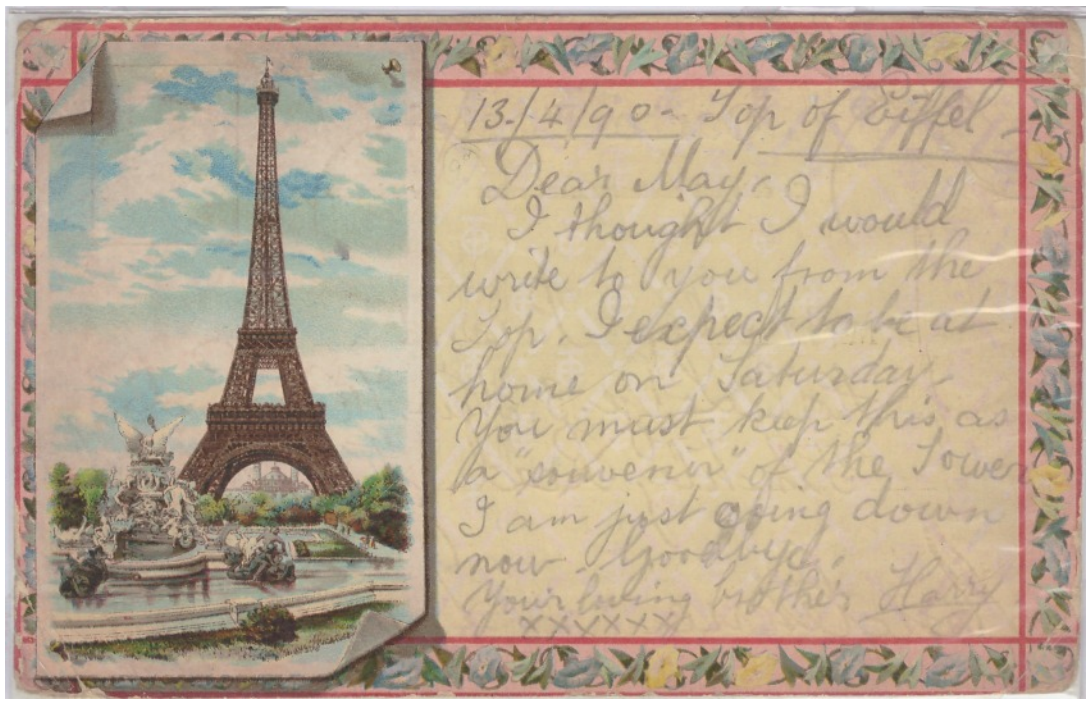 13./4/90 - Top of Eiffel -
Dear May,
I thought I would
write to you from the
Top. I expect to be at
home on Saturday.
You must keep this as
a "souvenir" of the Tower
I am just going down
now Goodbye.
Your loving brother Harry
xxxxxx